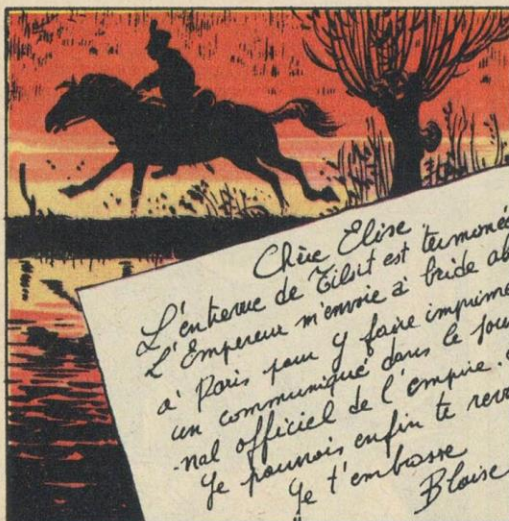 Chère Elise
L'entrevue de Tilsit est terminée
L'Empereur m'envoie à bride ab
à Paris pour y faire imprime
un communiqué dans le Jour
-nal officiel de l'empire.
Je pourrais enfin te revo
Je t'embrasse
Blaise